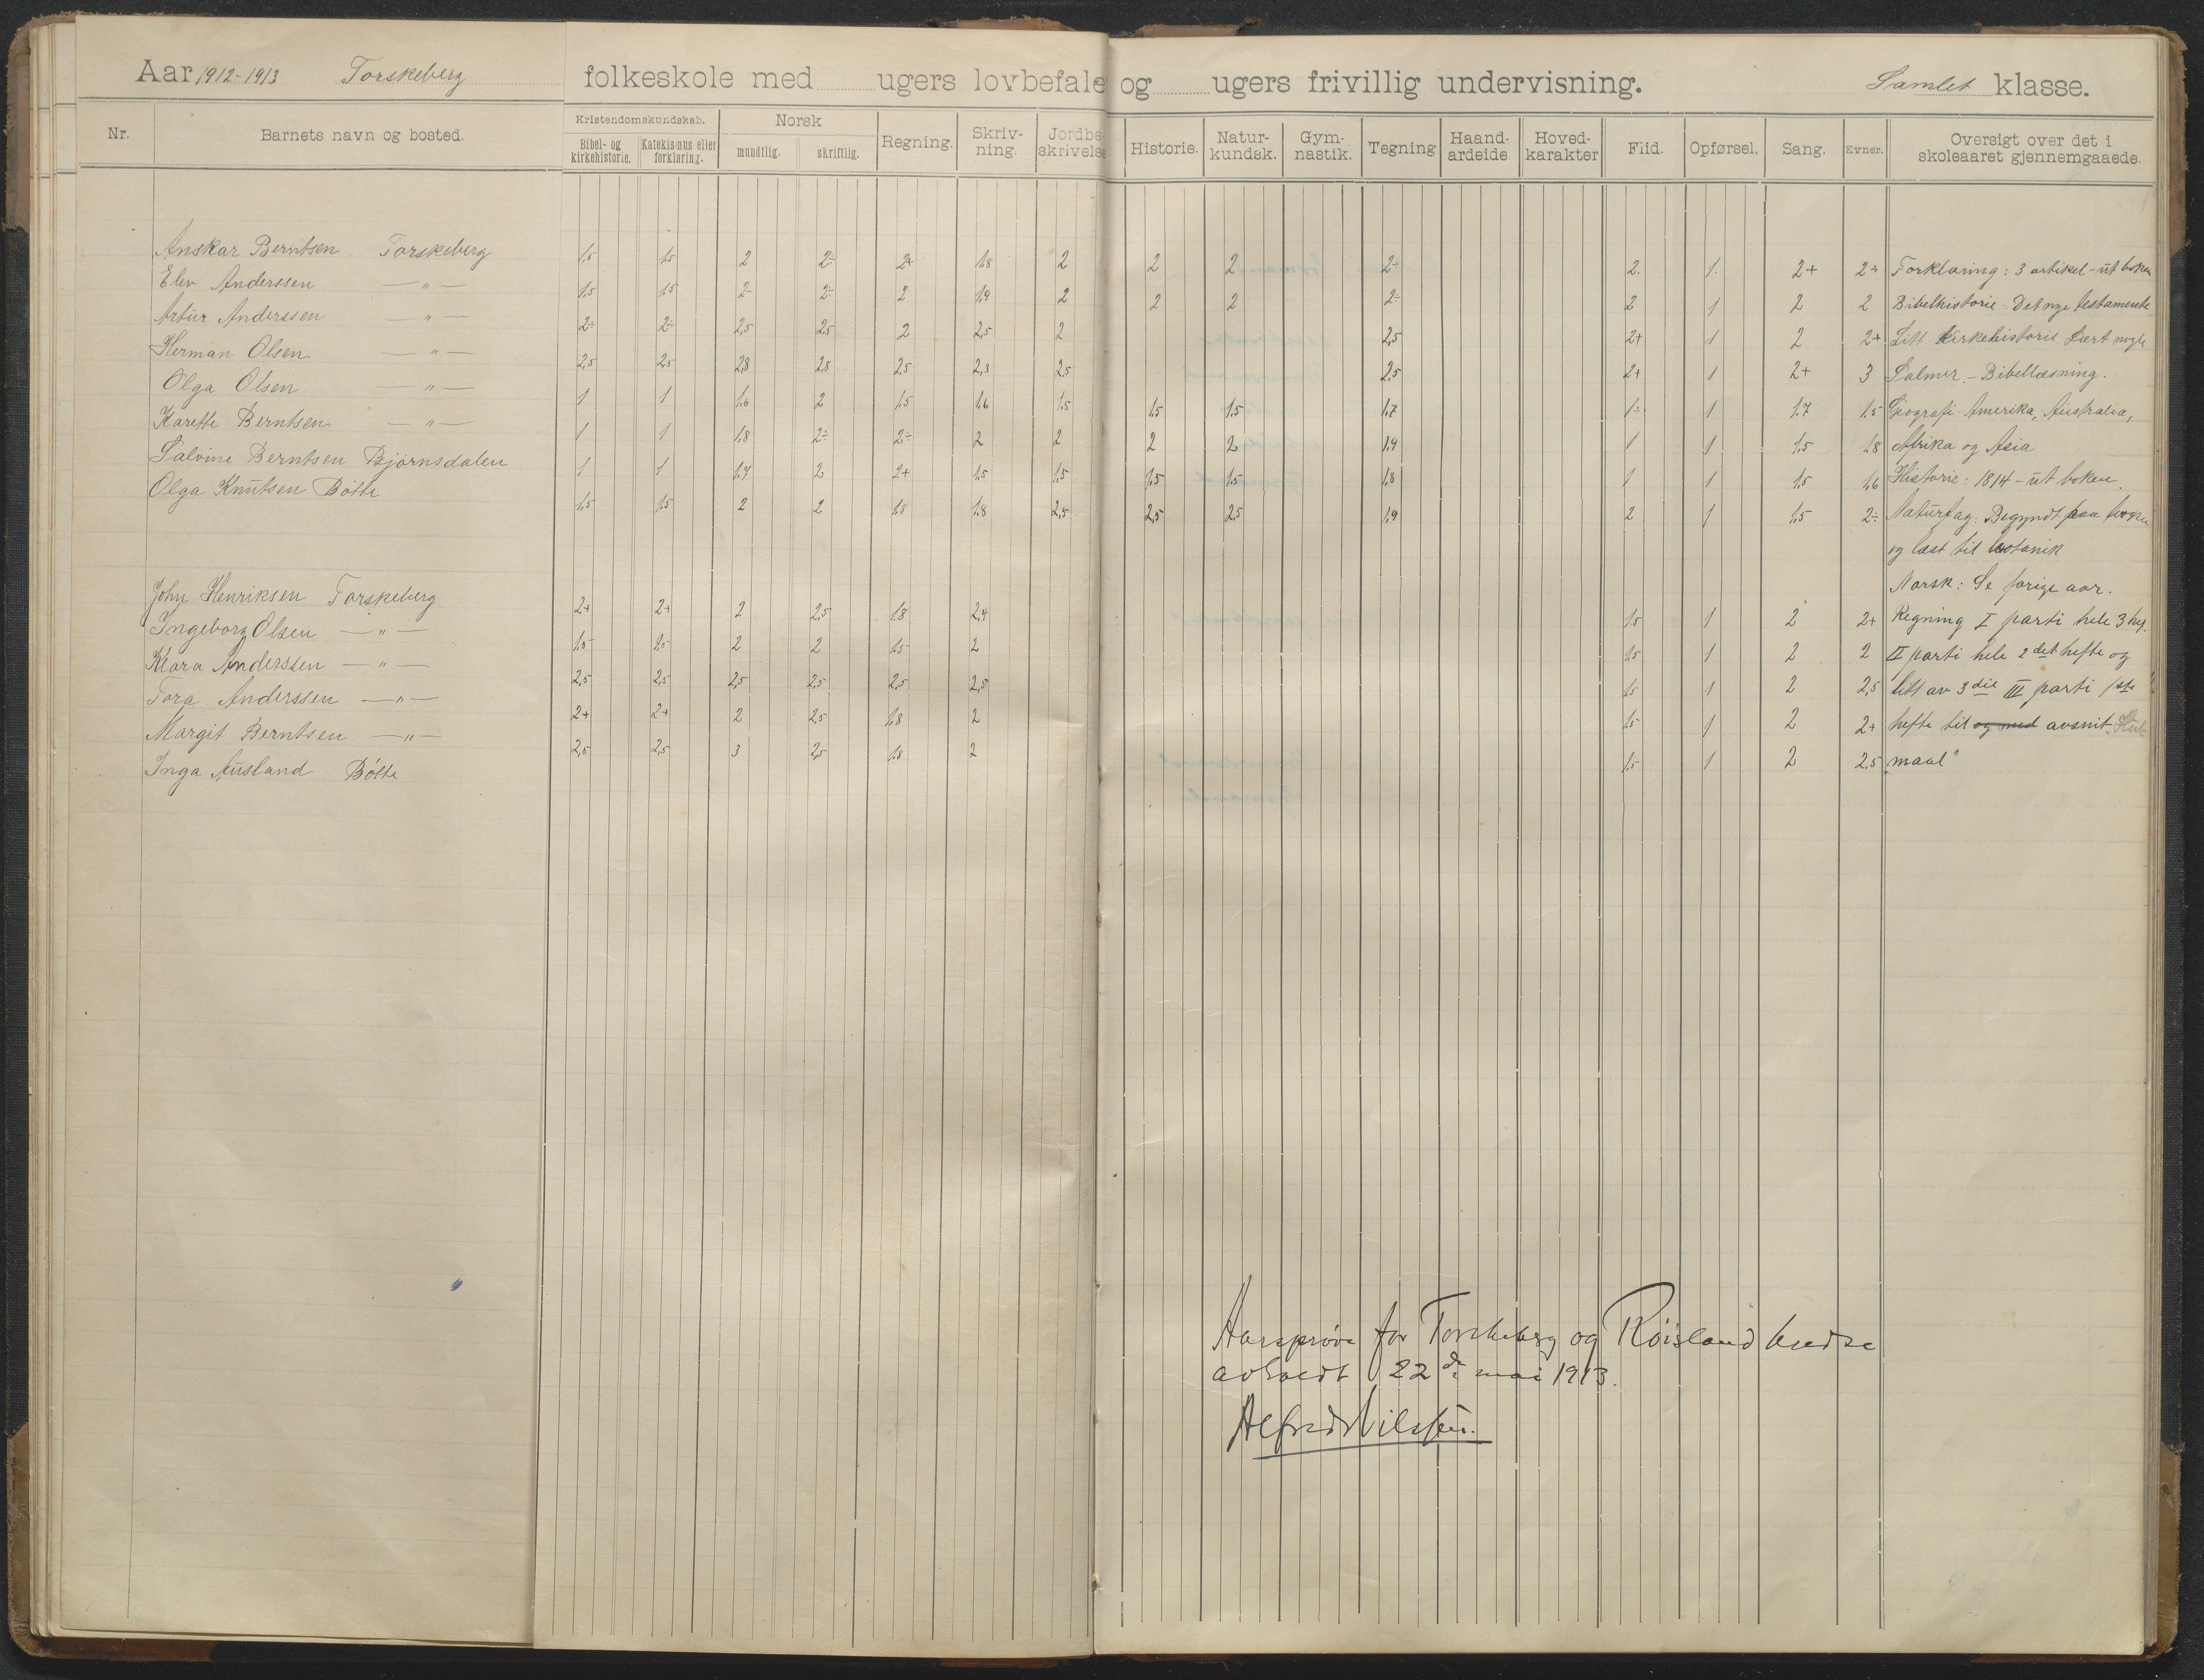 Aar 1912-1913 Torskeberg folkeskole med ugers lovbefale og ugers frivillig undervisning. Samlet klasse.
Nr. Barnets navn og bosted. Kristendomskundskab. Bibel- og kirkehistorie. Katekismus eller forklaring. Norsk mundtlig. skriftlig. Regning. Skriv-ning. Jordbe-skrivelse Historie. Natur-kundsk. Gym-nastik. Tegning Haand-arbeide Hoved-karakter Flid. Opførsel. Sang. Evner. Oversigt over det i skoleaaret gjennemgaaede.
Anskar Berntsen Torskeberg 1.5 1.5 2 2÷ 2+ 1.8 2 2 2 2÷ 2. 1. 2+ 2+ Forklaring: 3 artikel - ut boken
Elev Anderssen — " — 1.5 1.5 2- 2÷ 2 1.9 2 2 2 2÷ 2 1 2 2 Bibelhistorie: Det nye testamente
Artur Anderssen — " — 2÷ 2÷ 2,5 2,5 2 2,5 2 2,5 2+ 1 2 2+ Litt kirkehistorie Lært nogle
Herman Olsen — " — 2,5 2,5 2,8 2,8 2,5 2,3 2,5 2,5 2+ 1 2+ 3 Salmer. - Bibellæsning.
Olga Olsen — " — 1 1 1.6 2 1.5 1.6 1.5 1.5 1.5 1.7 1÷ 1 1.7 1.5 Geografi: Amerika, Australia,
Karette Berntsen — " — 1 1 1.8 2÷ 2÷ 2 2 2 2 1.9 1 1 1.5 1.8 Afrika og Asia
Salvine Berntsen Bjørnsdalen 1 1 1.7 2 2+ 1.5 1.5 1.5 1.5 1.8 1 1 1.5 1.6 Historie: 1814 - ut boken.
Olga Knutsen Bøtte 1.5 1.5 2 2 1.8 1.8 2,5 2,5 2,5 1.9 2 1 1.5 2÷ Naturfag: Begyndt paa boken
og læst til botanik
Norsk: Se forige aar.
John Henriksen Torskeberg 2+ 2+ 2 2,5 1.8 2,4 1.5 1 2 2+ Regning I parti hele 3 hef.
Ingeborg Olsen — " — 1.5 1.5 2 2 1.5 2 1.5 1 2 2 II parti hele 2det hefte og
Klara Anderssen — " — 2,5 2,5 2,5 2,5 2,5 2,5 1.5 1 2 2,5 litt av 3die III parti 1ste
Tora Anderssen — " — 2+ 2+ 2 2,5 1.8 2 1.5 1 2 2+ hefte til og med avsnit
Margit Berntsen — " — 2,5 2,5 3 2,5 1.8 2 1.5 1 2 2.5 maal"
Inga Ausland Bøtte
Aarsprøve for Torskeberg og Røisland kredse
avholdt 22de mai 1913.
Alfred Nilssen.